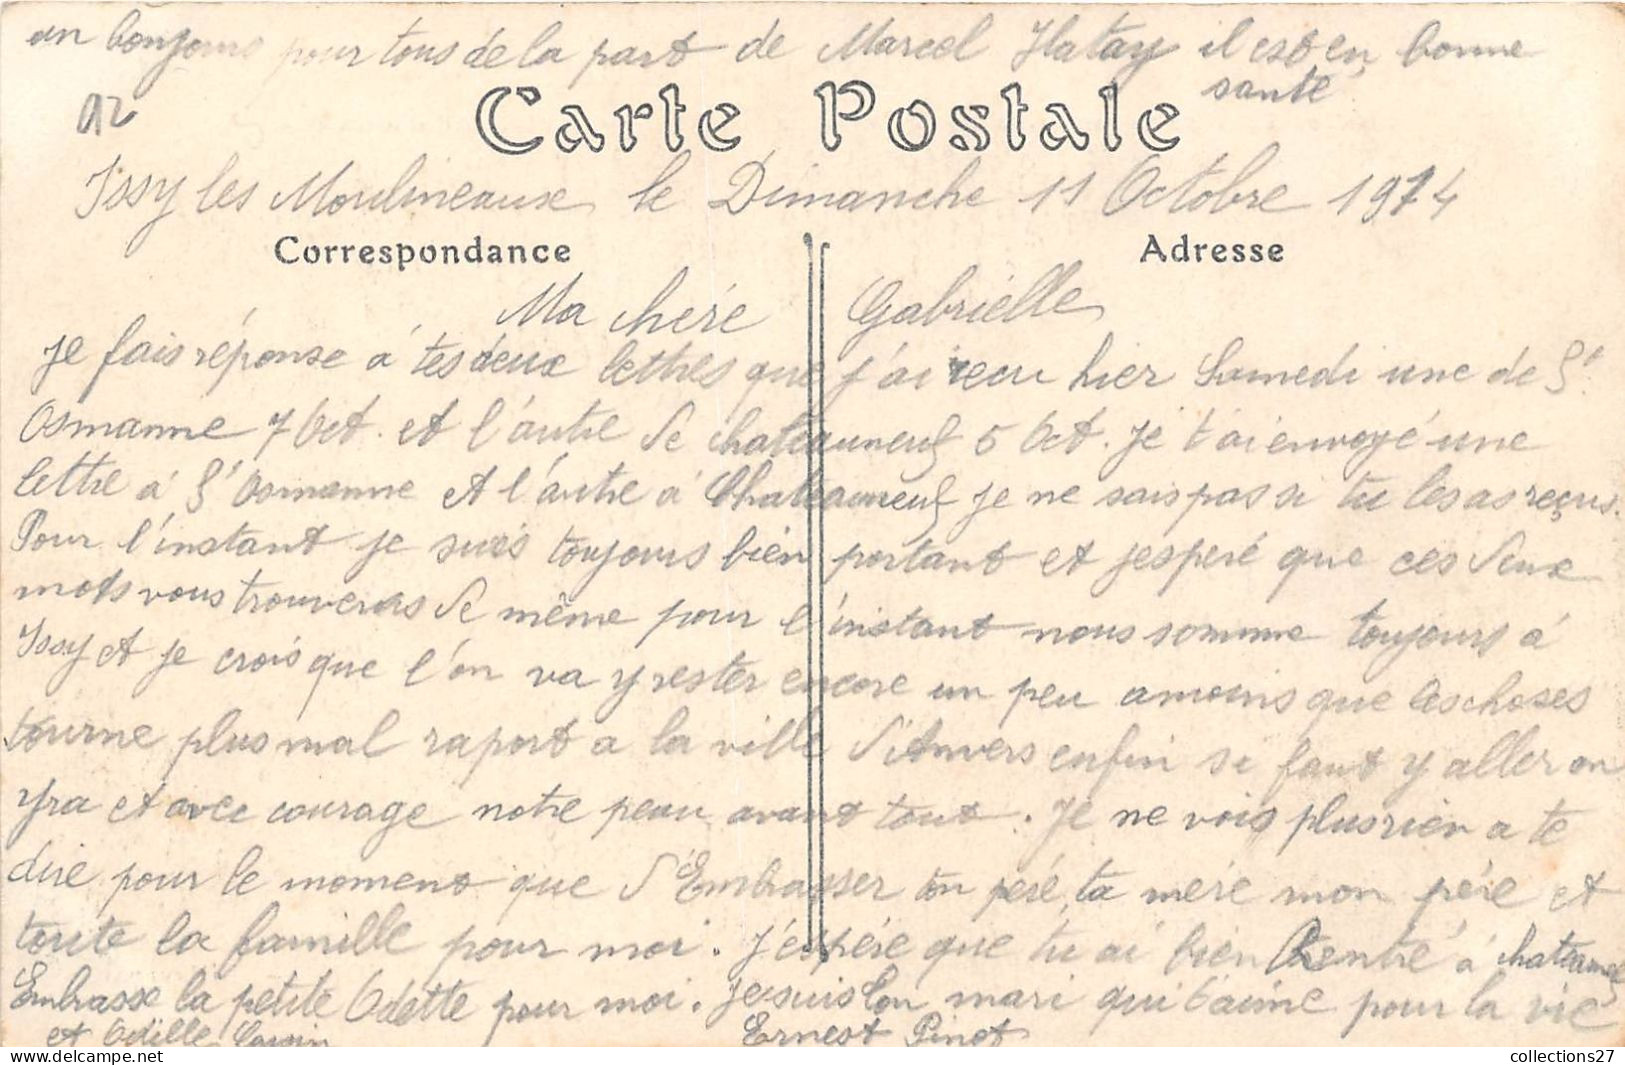 un bonjours pour tous de la part de Marcel Hatay il est en bonne
santé
92
Carte Postale
Issy les Moulineaux le Dimanche 11 Octobre 1914
Correspondance
Adresse
Ma chére Gabriélle
je fais réponse à tes deux lettres que j'ai recu hier Samedi une de St
Osmanne 7 Oct. et l'autre de chateauneuf 5 Oct. je t'ai envoyé une
lettre à St Osmanne et l'autre à Chateauneuf je ne sais pas si tu les as reçus.
Pour l'instant je suis toujours bien portant et jesperé que ces deux
mots vous trouveras de même pour l'instant nous somme toujours à
Issy et je crois que l'on va y rester encore un peu amoins que les choses
tourne plus mal raport a la ville d'Anvers enfin si faut y aller on
yra et avec courage notre peau avant tout. Je ne vois plus rien a te
dire pour le moment que d'Embrasser ton péré, ta mére mon pére et
toute la famille pour moi. J'éspére que tu ai bien Rentré à chateauneuf
Embrasse la petite Odette pour moi. je suis ton mari qui t'aime pour la vie
et Odille
Ernest Pinot
collections27